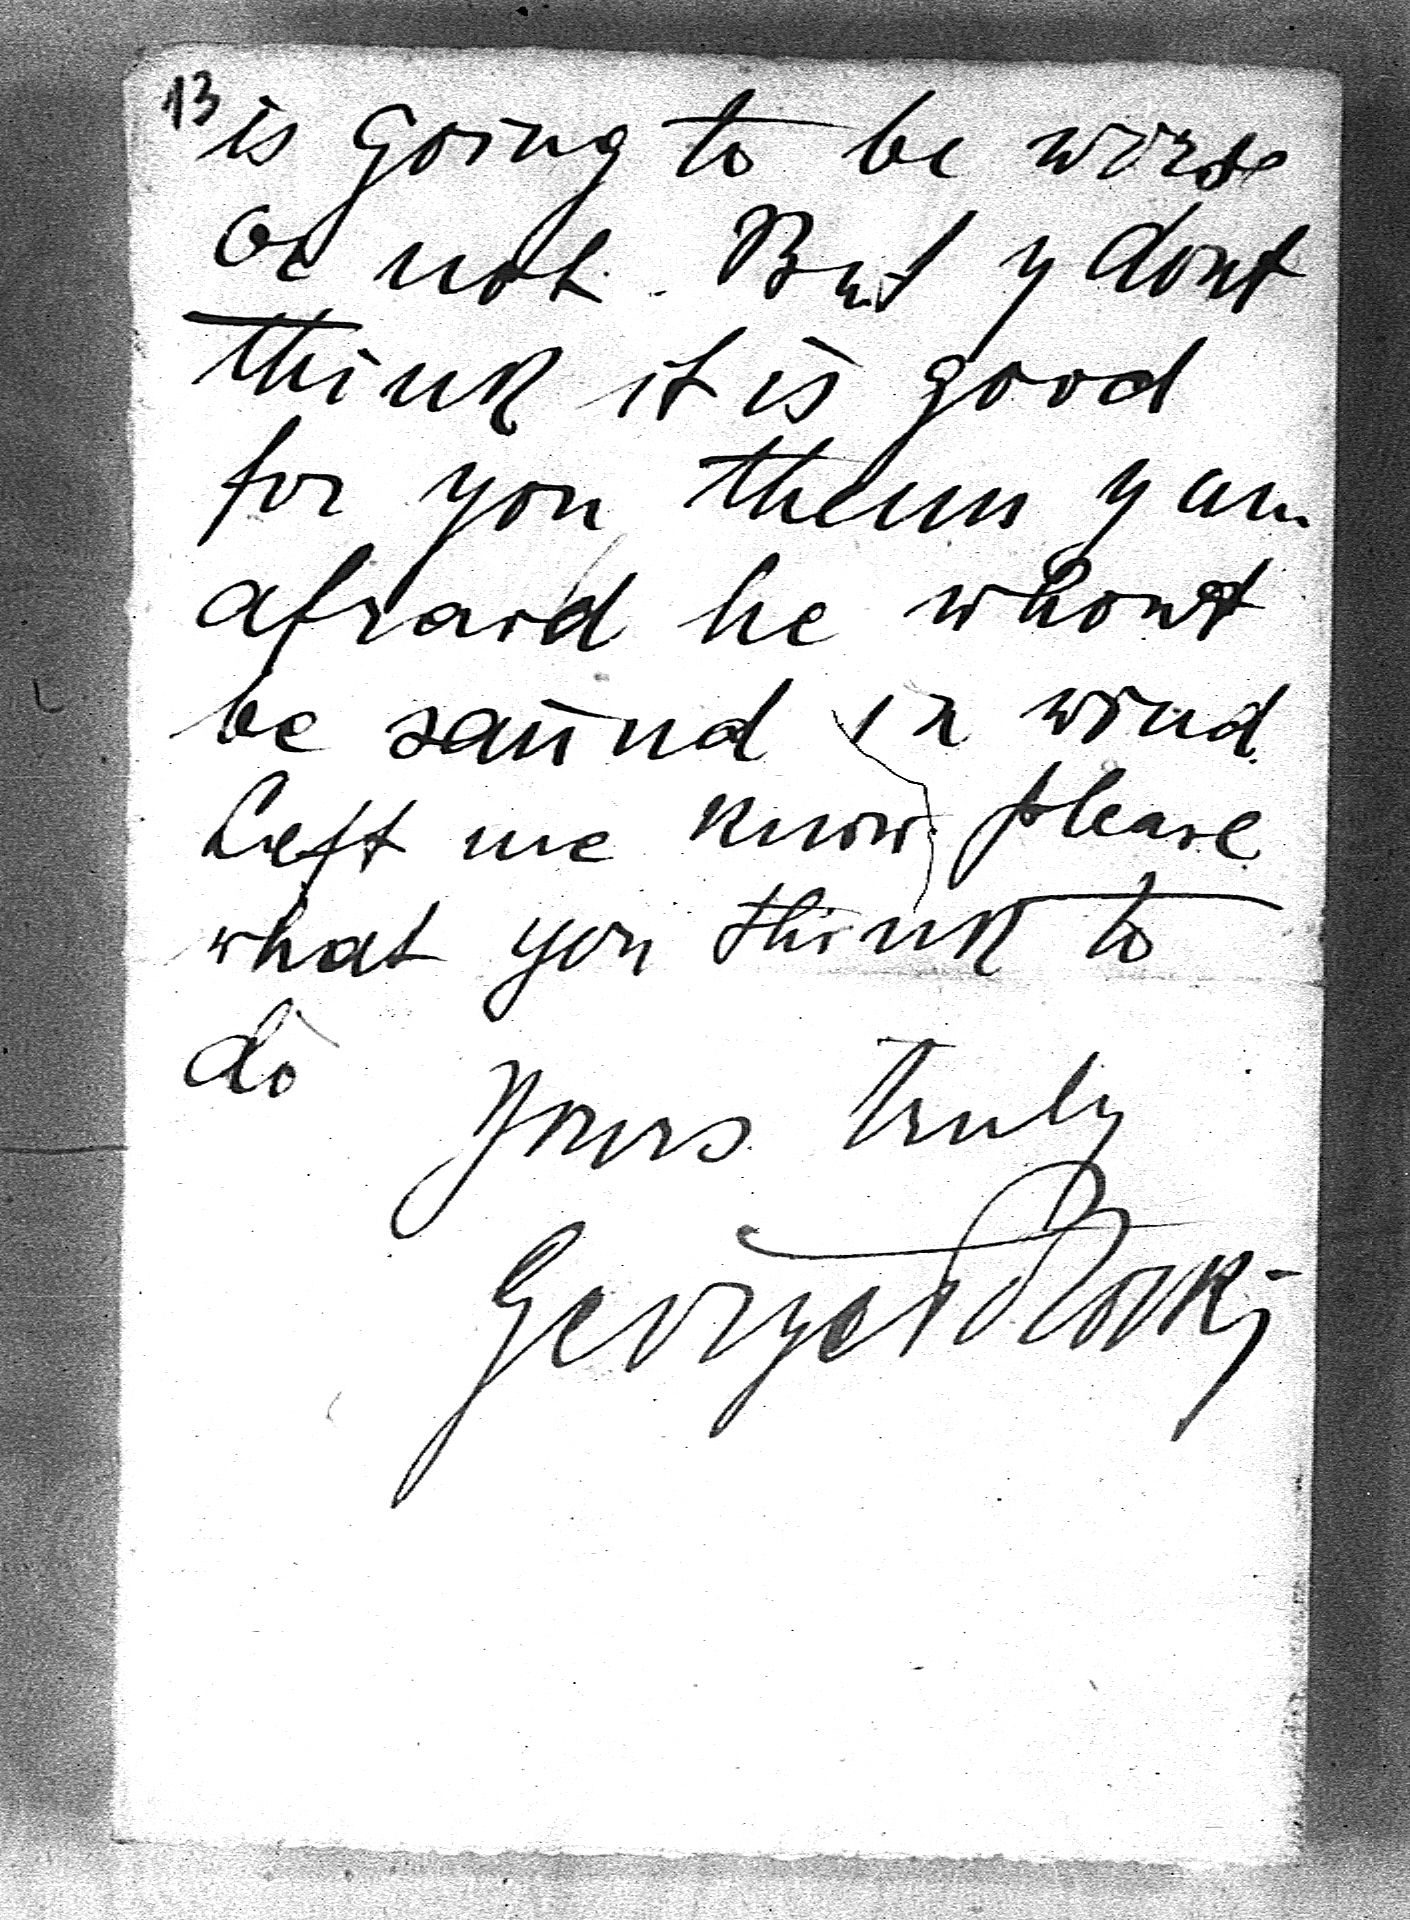 13
is going to be worse
or not. But y dont
think it is good
for you themm y am
afraid he whont
be saund in wind.
Lett me know please
what you think to
do
Yours truly
George